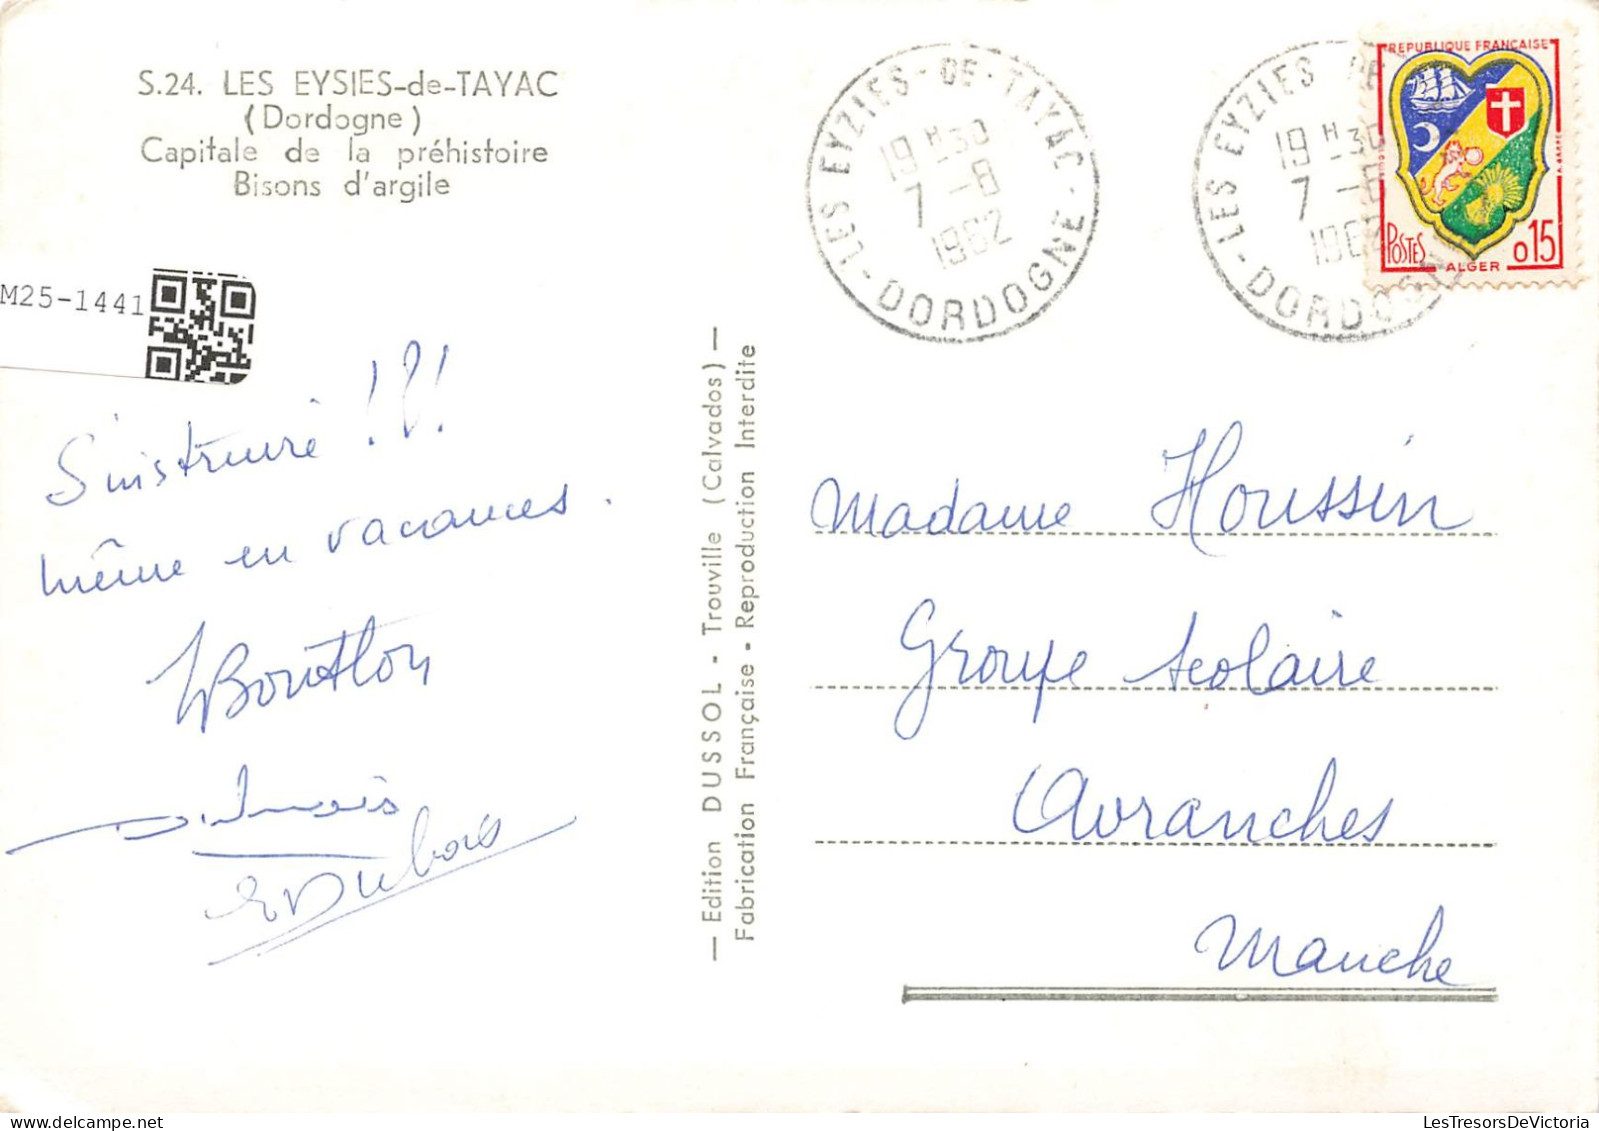 S.24. LES EYSIES-de-TAYAC
(Dordogne)
Capitale de la préhistoire
Bisons d'argile
M25-1441
S'instruire !!!
même en vacances.
E Dubois
— Edition DUSSOL - Trouville (Calvados) —
Fabrication Française - Reproduction Interdite
LES EYZIES-DE-TAYAC
19 H 30
7 -8
1962
- DORDOGNE -
LES EYZIES DE
19 H 30
7 -8
1962
- DORDOGNE
REPUBLIQUE FRANÇAISE
POSTES
ALGER
0,15
Madame Houssin
Groupe scolaire
Avranches
Manche
LesTresorsDeVictoria.com